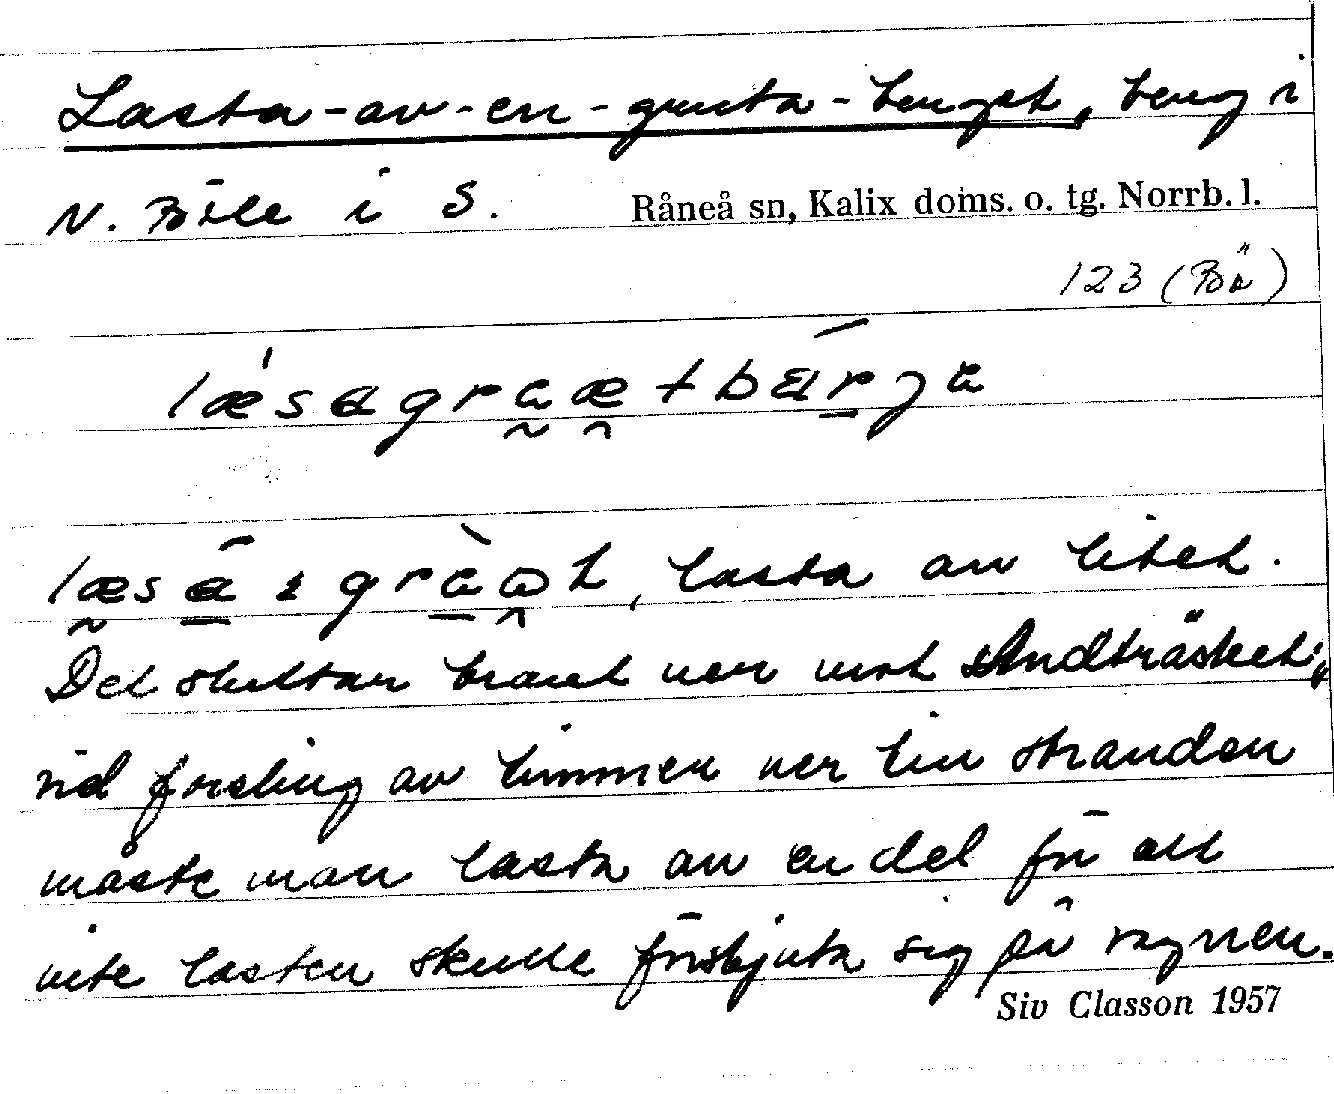 Lasta-av-en-gnuta-berget, berg i
N. Böle i S. Råneå sn, Kalix doms. o. tg. Norrb. l.
123 (Bä)
lasta av litet.
Det sluttar brant ner mot Andträsket;
vid forsling av timmer ner till stranden
måste man lasta av en del för att
inte lasten skulle förskjuta sig på vagnen.
Siv Classon 1957